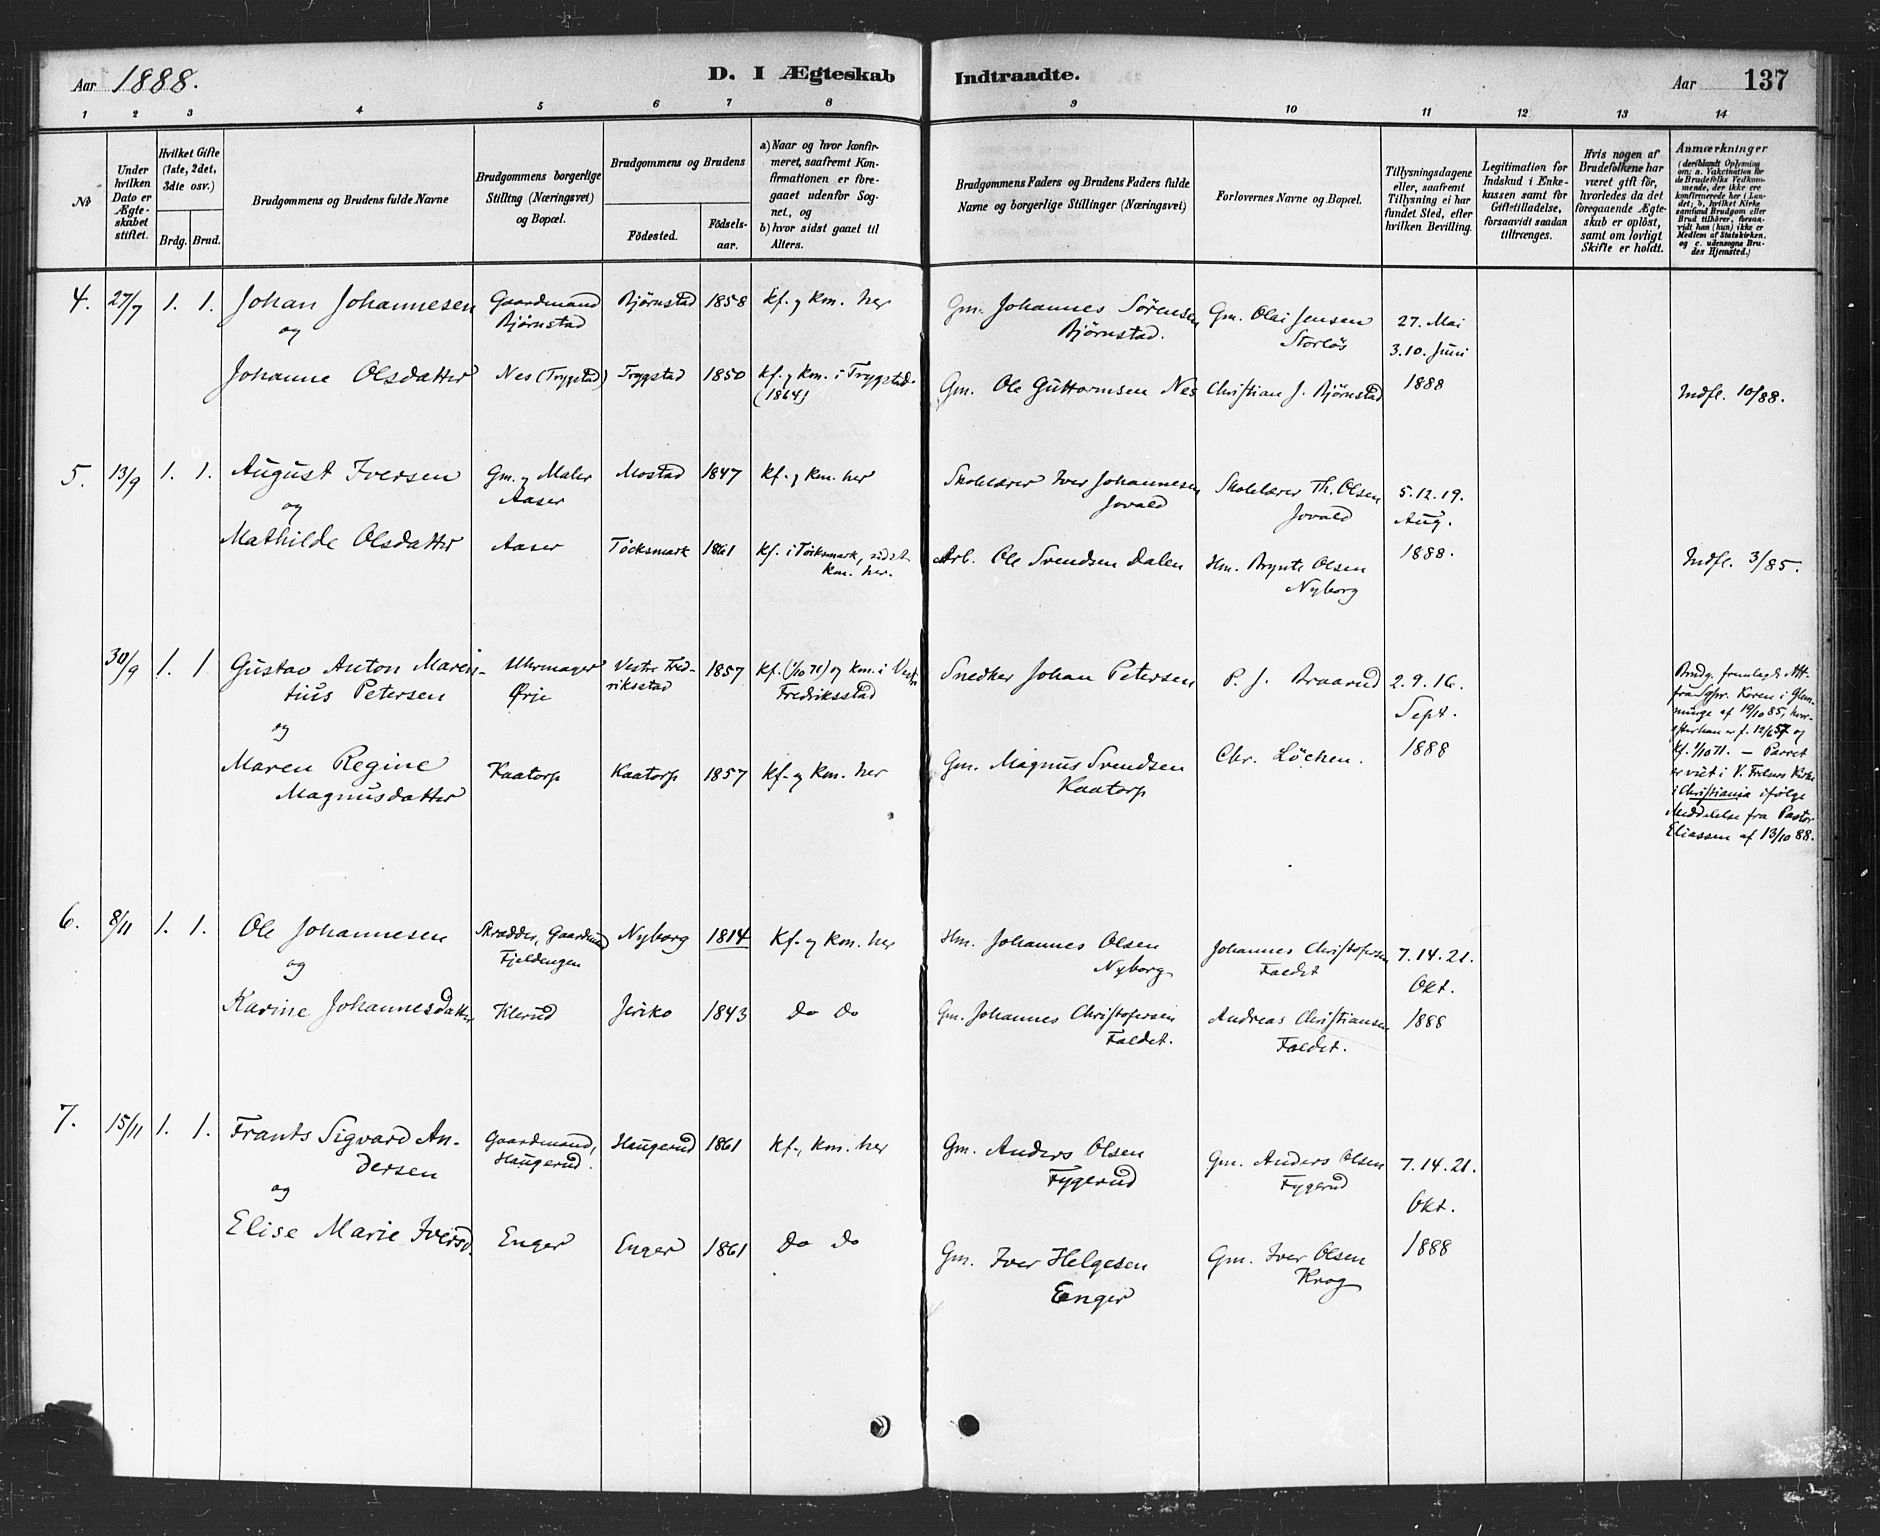 Aar 1888.
D. I Ægteskab Indtraadte.
Aar 137
1 2 3 4 5 6 7 8 9 10 11 12 13 14
No
Under hvilken Dato er Ægteskabet stiftet.
Hvilket Gifte (1ste, 2det, 3die osv.)
Brdg. Brud.
Brudgommens og Brudens fulde Navne
Brudgommens borgerlige Stilling (Næringsvei) og Bopæl.
Brudgommens og Brudens
Fødested.
Fødselsaar.
a) Naar og hvor konfirmeret, saafremt Konfirmationen er foregaaet udenfor Sognet, og
b) hvor sidst gaaet til Alters.
Brudgommens Faders og Brudens Faders fulde Navne og borgerlige Stillinger (Næringsvei)
Forlovernes Navne og Bopæl.
Tillysningsdagene eller, saafremt Tillysning ei har fundet Sted, efter hvilken Bevilling.
Legitimation for Indskud i Enkekassen samt for Giftetilladelse, forsaavidt saadan tiltrænges.
Hvis nogen af Brudefolkene har været gift før, hvorledes da det foregaaende Ægteskab er opløst, samt om lovligt Skifte er holdt.
Anmærkninger
(deriblandt Oplysning om: a. Vakcination for de Brudefolks Vedkommende, der ikke ere konfirmerede her i Landet; b. hvilket Kirkesamfund Brudgom eller Brud tilhører, forsaavidt han (hun) ikke er Medlem af Statskirken, og c. udensogns Brudes Hjemsted.)
4. 27/7 1. 1. Johan Johannesen Gaardmand Bjørnstad 1858 Kf. og Km. her Gm. Johannes Sørensen Gm. Olai Jensen 27. Mai
og Bjørnstad Bjørnstad. Storløs 3.10. Juni
Johanne Olsdatter Nes (Trygstad) Trygstad 1850 Kf. og Km. i Trygstad. Gm. Ole Guttormsen Nes Christian J. Bjørnstad 1888 Indfl. 10/88.
(1864)
5. 13/9 1. 1. August Iversen Gm. og Maler Mostad 1847 Kf. og Km. her Skolelærer Iver Johannesen Skolelærer Th. Olsen 5.12.19.
og Aaser Jovald Jovald Aug.
Mathilde Olsdatter Aaser Töcksmark 1861 Kf. i Töcksmark, sidst Arb. Ole Svendsen Dalen Hm. Brynte Olsen 1888. Indfl. 3/85.
Km. her. Nyborg
30/9 1. 1 Gustav Anton Maren- Uhrmager Vestre Fred- 1857 Kf. (1/10 71) og Km. i Vestre Snedker Johan Petersen P. J. Braarud 2.9.16.
tius Petersen Ørje riksstad Fredriksstad Sept.
og
Maren Regine Kaatorp Kaatorp 1857 Kf. og Km. her Gm. Magnus Svendsen Chr. Löchen. 1888
Magnusdatter Kaatorp
Brudg. fremlagde Att.
fra Sgpr. Koren i Glem-
minge af 19/10 85, hvor-
efter han er f. 12/6 57 og
Kf. 1/10 71. — Parret
er viet i V. Frelsers Kirke
i Christiania ifølge
Meddelelse fra Pastor
Eliassen af 13/10 88.
6. 8/11 1. 1. Ole Johannesen Skrædder, Gaardmand Nyborg 1814 Kf. og Km. her Hm. Johannes Olsen Johannes Christofersen 7.14.21.
og Fjeldengen Nyborg Faldet Okt.
Karine Johannesdatter Klerud Jeriko 1843 Do Do Gm. Johannes Christofersen Andreas Christiansen 1888
Faldet. Faldet.
7. 15/11 1. 1. Frants Sigvard An- Gaardmand, Haugerud 1861 Kf., Km. her Gm. Anders Olsen Gm. Anders Olsen 7.14.21.
dersen Haugerud. Fygerud Fygerud
og Okt.
Elise Marie Iversd. Enger Enger 1861 Do Do Gm. Iver Helgesen Gm. Iver Olsen 1888
Enger Krog